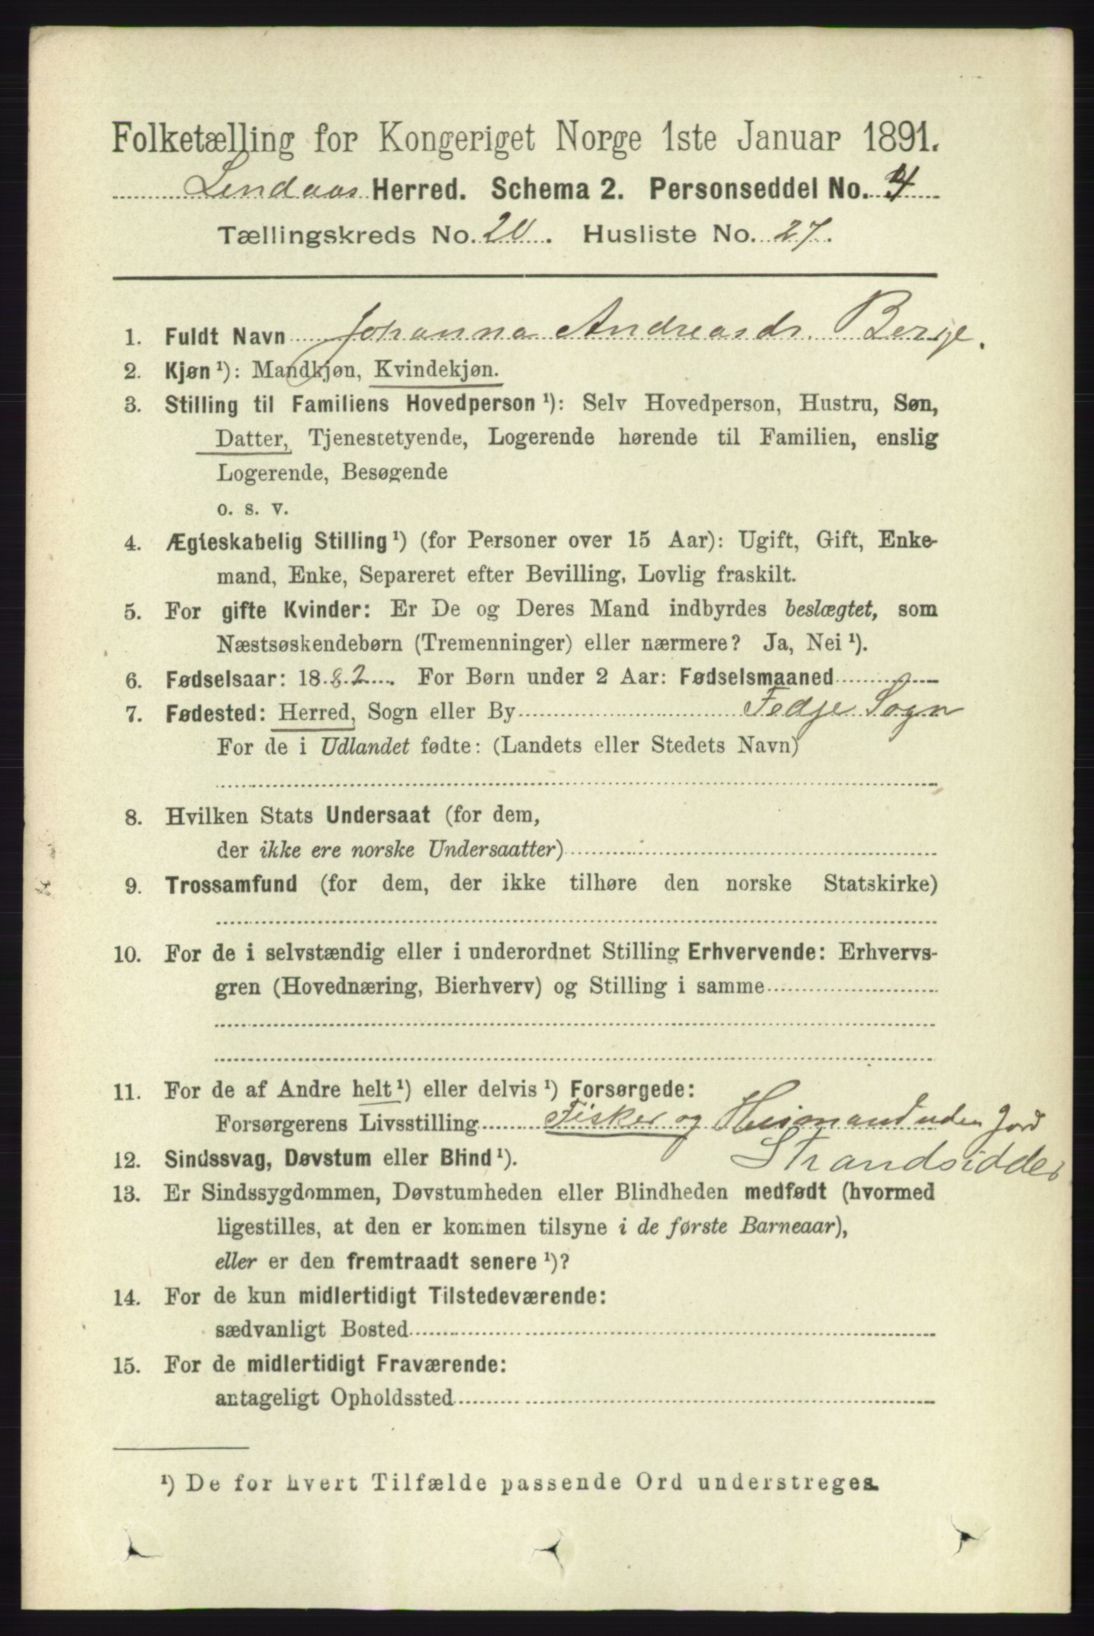 Folketælling for Kongeriget Norge 1ste Januar 1891.
Lindaas Herred. Schema 2. Personseddel No. 4
Tællingskreds No. 20. Husliste No. 27.
1. Fuldt Navn Johanna Andreasdr. Berge.
2. Kjøn ¹): Mandkjøn, Kvindekjøn.
3. Stilling til Familiens Hovedperson ¹): Selv Hovedperson, Hustru, Søn,
Datter, Tjenestetyende, Logerende hørende til Familien, enslig
Logerende, Besøgende
o. s. v.
4. Ægteskabelig Stilling ¹) (for Personer over 15 Aar): Ugift, Gift, Enke-
mand, Enke, Separeret efter Bevilling, Lovlig fraskilt.
5. For gifte Kvinder: Er De og Deres Mand indbyrdes beslægtet, som
Næstsøskendebørn (Tremenninger) eller nærmere? Ja, Nei ¹).
6. Fødselsaar: 1882. For Børn under 2 Aar: Fødselsmaaned
7. Fødested: Herred, Sogn eller By Fedje Sogn
For de i Udlandet fødte: (Landets eller Stedets Navn)
8. Hvilken Stats Undersaat (for dem,
der ikke ere norske Undersaatter)
9. Trossamfund (for dem, der ikke tilhøre den norske Statskirke)
10. For de i selvstændig eller i underordnet Stilling Erhvervende: Erhvervs-
gren (Hovednæring, Bierhverv) og Stilling i samme
11. For de af Andre helt ¹) eller delvis ¹) Forsørgede:
Forsørgerens Livsstilling Fisker og Husmand uden Jord
Strandsidder
12. Sindssvag, Døvstum eller Blind ¹).
13. Er Sindssygdommen, Døvstumheden eller Blindheden medfødt (hvormed
ligestilles, at den er kommen tilsyne i de første Barneaar),
eller er den fremtraadt senere ¹)?
14. For de kun midlertidigt Tilstedeværende:
sædvanligt Bosted
15. For de midlertidigt Fraværende:
antageligt Opholdssted
¹) De for hvert Tilfælde passende Ord understreges.